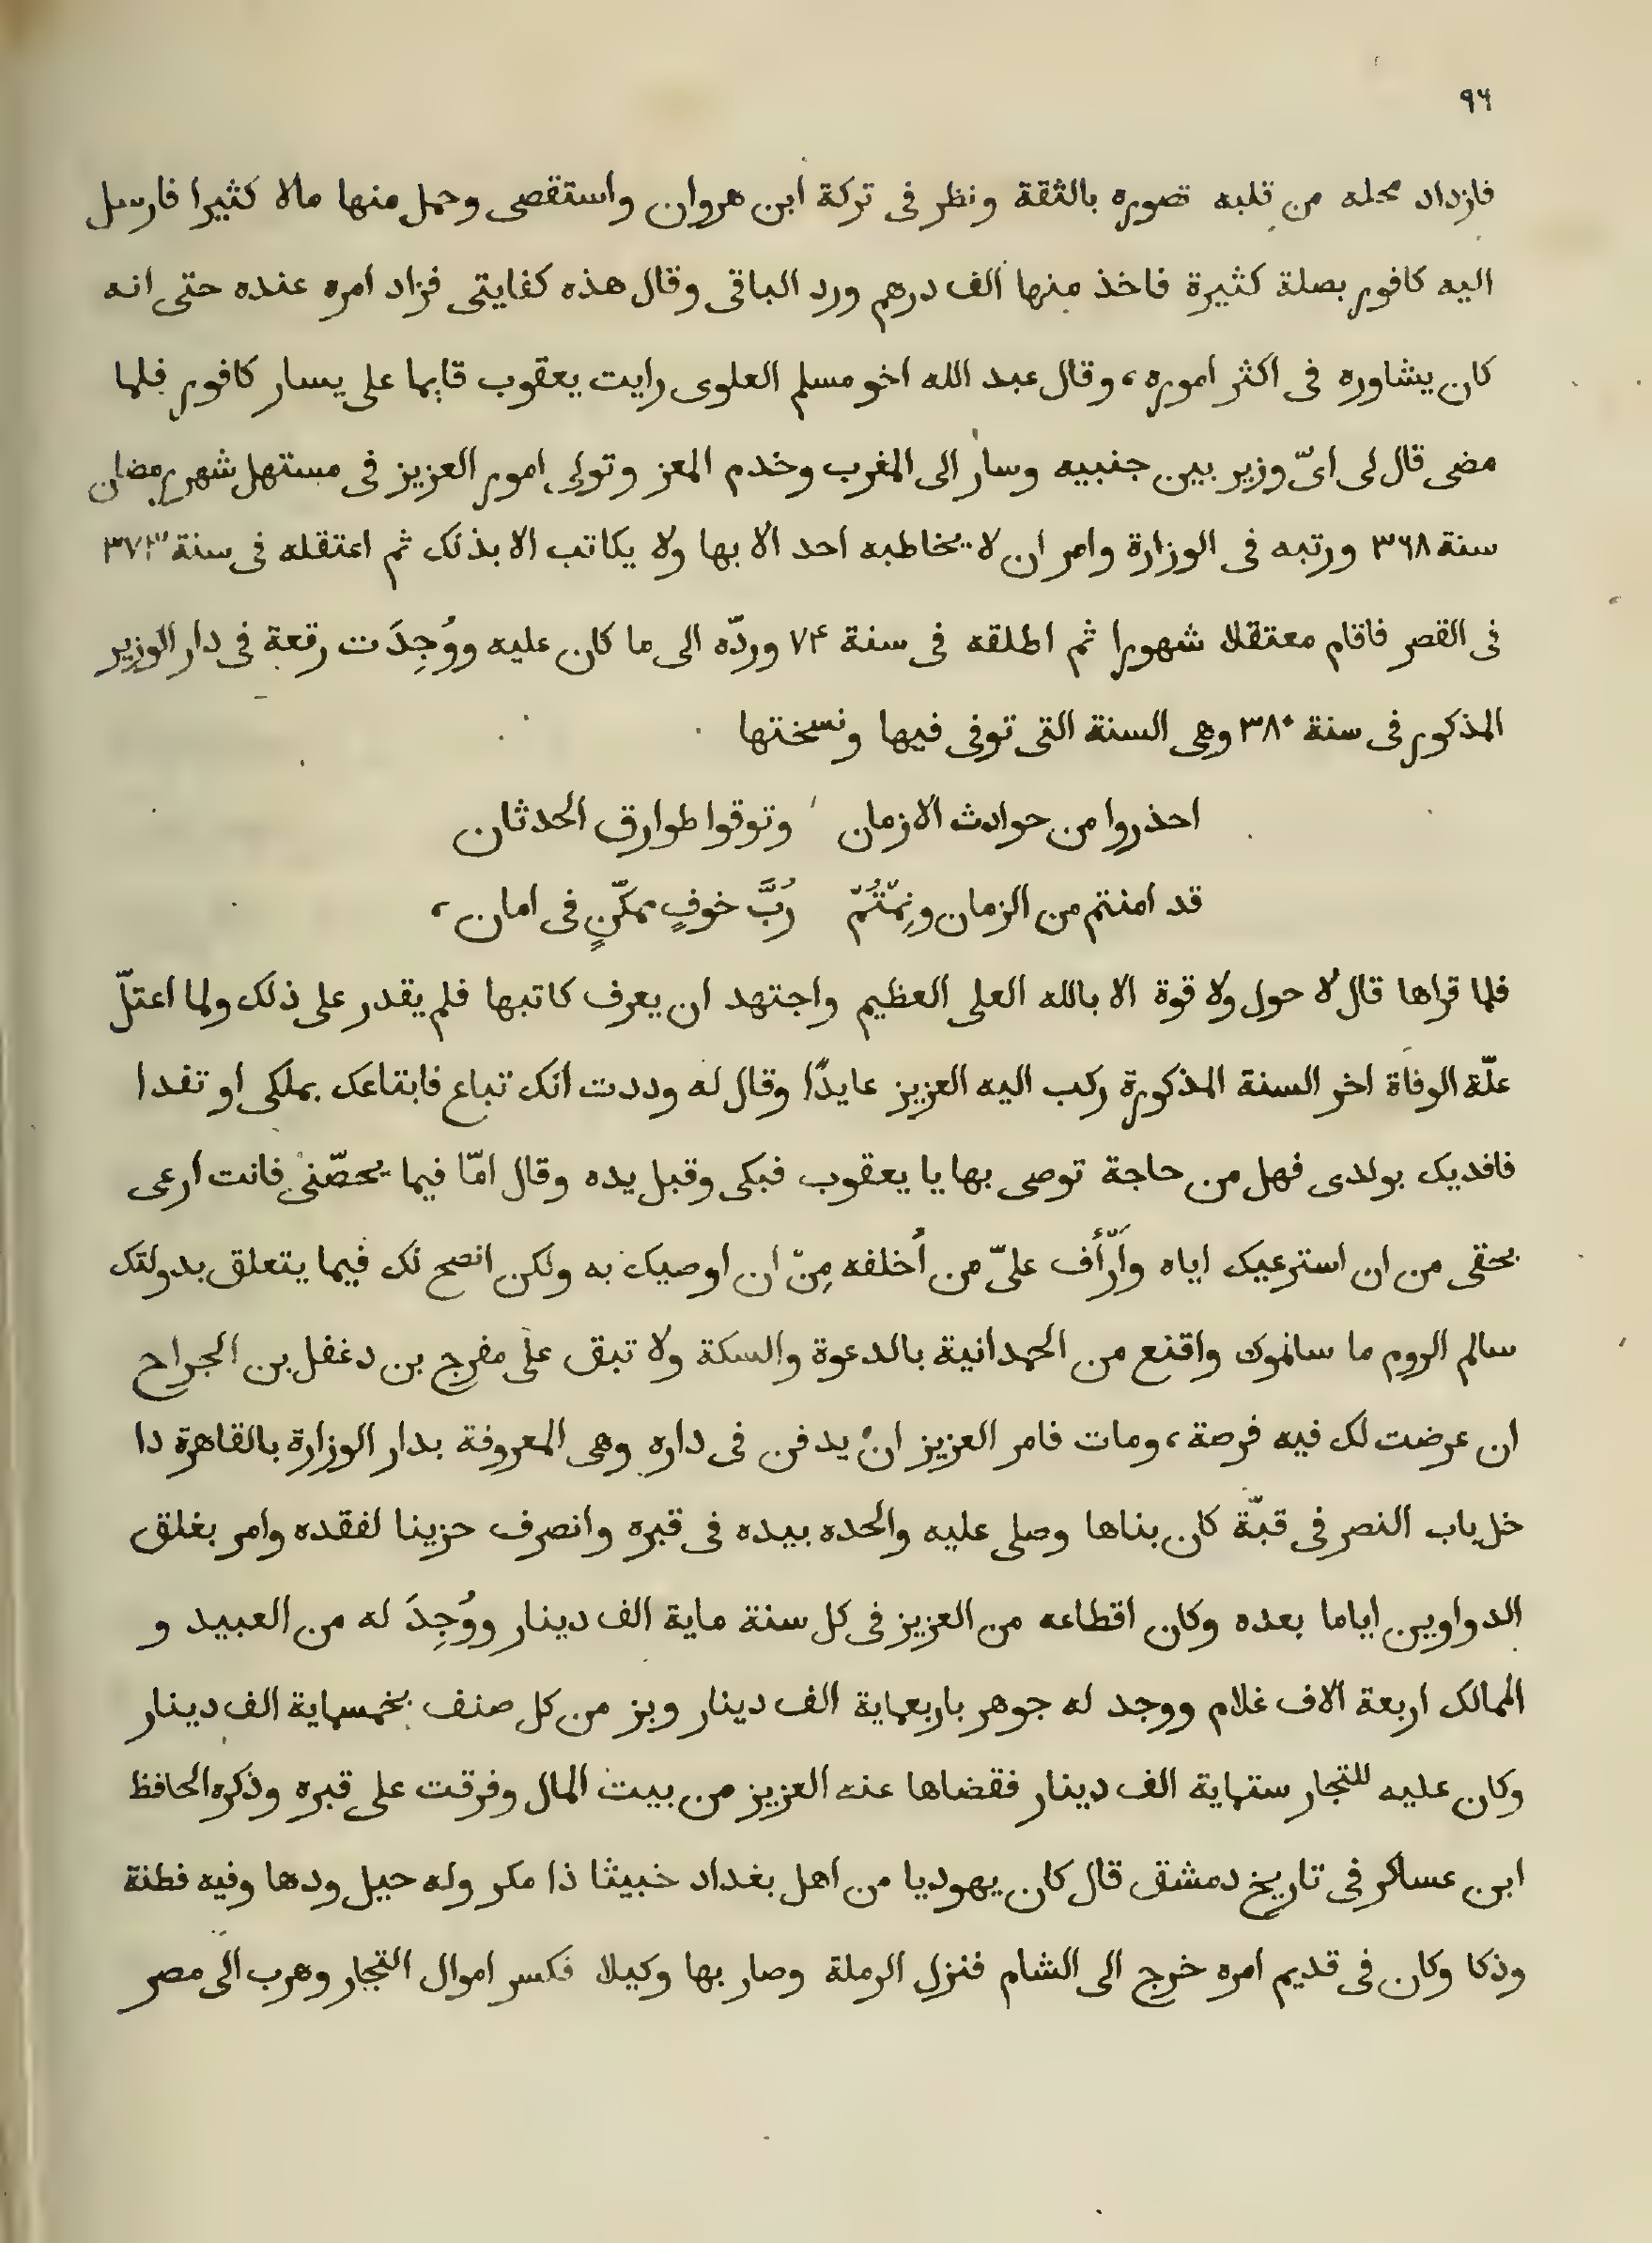 ٩٦
فازداد محله من قلبه تصوره بالثقة ونظر فى تركة ابن هروان واستقصى وحمل منها مالا كثيرا فارسل
اليه كافور بصلة كثيرة فاخذ منها الف درهم ورد الباقى وقال هذه كفايتى فزاد امره عنده حتى انه
كان يشاوره فى اكثر اموره، وقال عبد الله اخو مسلم العلوى رايت يعقوب قايما على يسار كافور فلما
مضى قال لى اىّ وزير بين جنبيه وسار الى المغرب وخدم المعز وتولى امور العزيز فى مستهل شهر رمضان
سنة ٣٦٨ ورتبه فى الوزارة وامر ان لا يخاطبه احد الا بها ولا يكاتب الا بذلك ثم اعتقله فى سنة ٣٧٣
فى القصر فاقام معتقلا شهورا ثم اطلقه فى سنة ٧۴ وردّه الى ما كان عليه ووُجِدَت رقعة فى دار الوزير
المذكور فى سنة ٣٨٠ وهى السنة التى توفى فيها ونسختها
احذروا من حوادث الازمان وتوقوا طوارق الحدثان
قد امنتم من الزمان ونِمْتُمّ رُبَّ خوفٍ ممكّنٍ فى امان،
فلما قراها قال لا حول ولا قوة الا بالله العلى العظيم واجتهد ان يعرف كاتبها فلم يقدر على ذلك ولما اعتلّ
علّة الوفاة اخر السنة المذكورة ركب اليه العزيز عايدًا وقال له وددت انك تباع فابتاعك بملكى او تفدا
فافديك بولدى فهل من حاجة توصى بها يا يعقوب فبكى وقبل يده وقال امّا فيما يخصّنى فانت ارعى
بحقى من ان استرعيك اياه وأرأف علىّ من أخلفه مِنّ ان اوصيك به ولكن انصح لك فيما يتعلق بدولتك
سالم الروم ما سالموك واقنع من الحمدانية بالدعوة والسكة ولا تبق على مفرج بن دغفل بن الجراح
ان عرضت لك فيه فرصة، ومات فامر العزيز انْ يدفن فى داره وهى المعروفة بدار الوزارة بالقاهرة دا
خل باب النصر فى قبّة كان بناها وصلى عليه والحده بيده فى قبره وانصرف حزينا لفقده وامر بغلق
الدواوين اياما بعده وكان اقطاعه من العزيز فى كل سنة ماية الف دينار ووُجِدَ له من العبيد و
الممالك اربعة الاف غلام ووجد له جوهر باربعماية الف دينار وبز من كل صنف بخمسماية الف دينار
وكان عليه للتجار ستماية الف دينار فقضاها عنه العزيز من بيت المال وفرقت على قبره وذكره الحافظ
ابن عساكر فى تاريخ دمشق قال كان يهوديا من اهل بغداد خبيثا ذا مكر وله حيل ودها وفيه فطنة
وذكا وكان فى قديم امره خرج الى الشام فنزل الرملة وصار بها وكيلا فكسر اموال التجار وهرب الى مصر